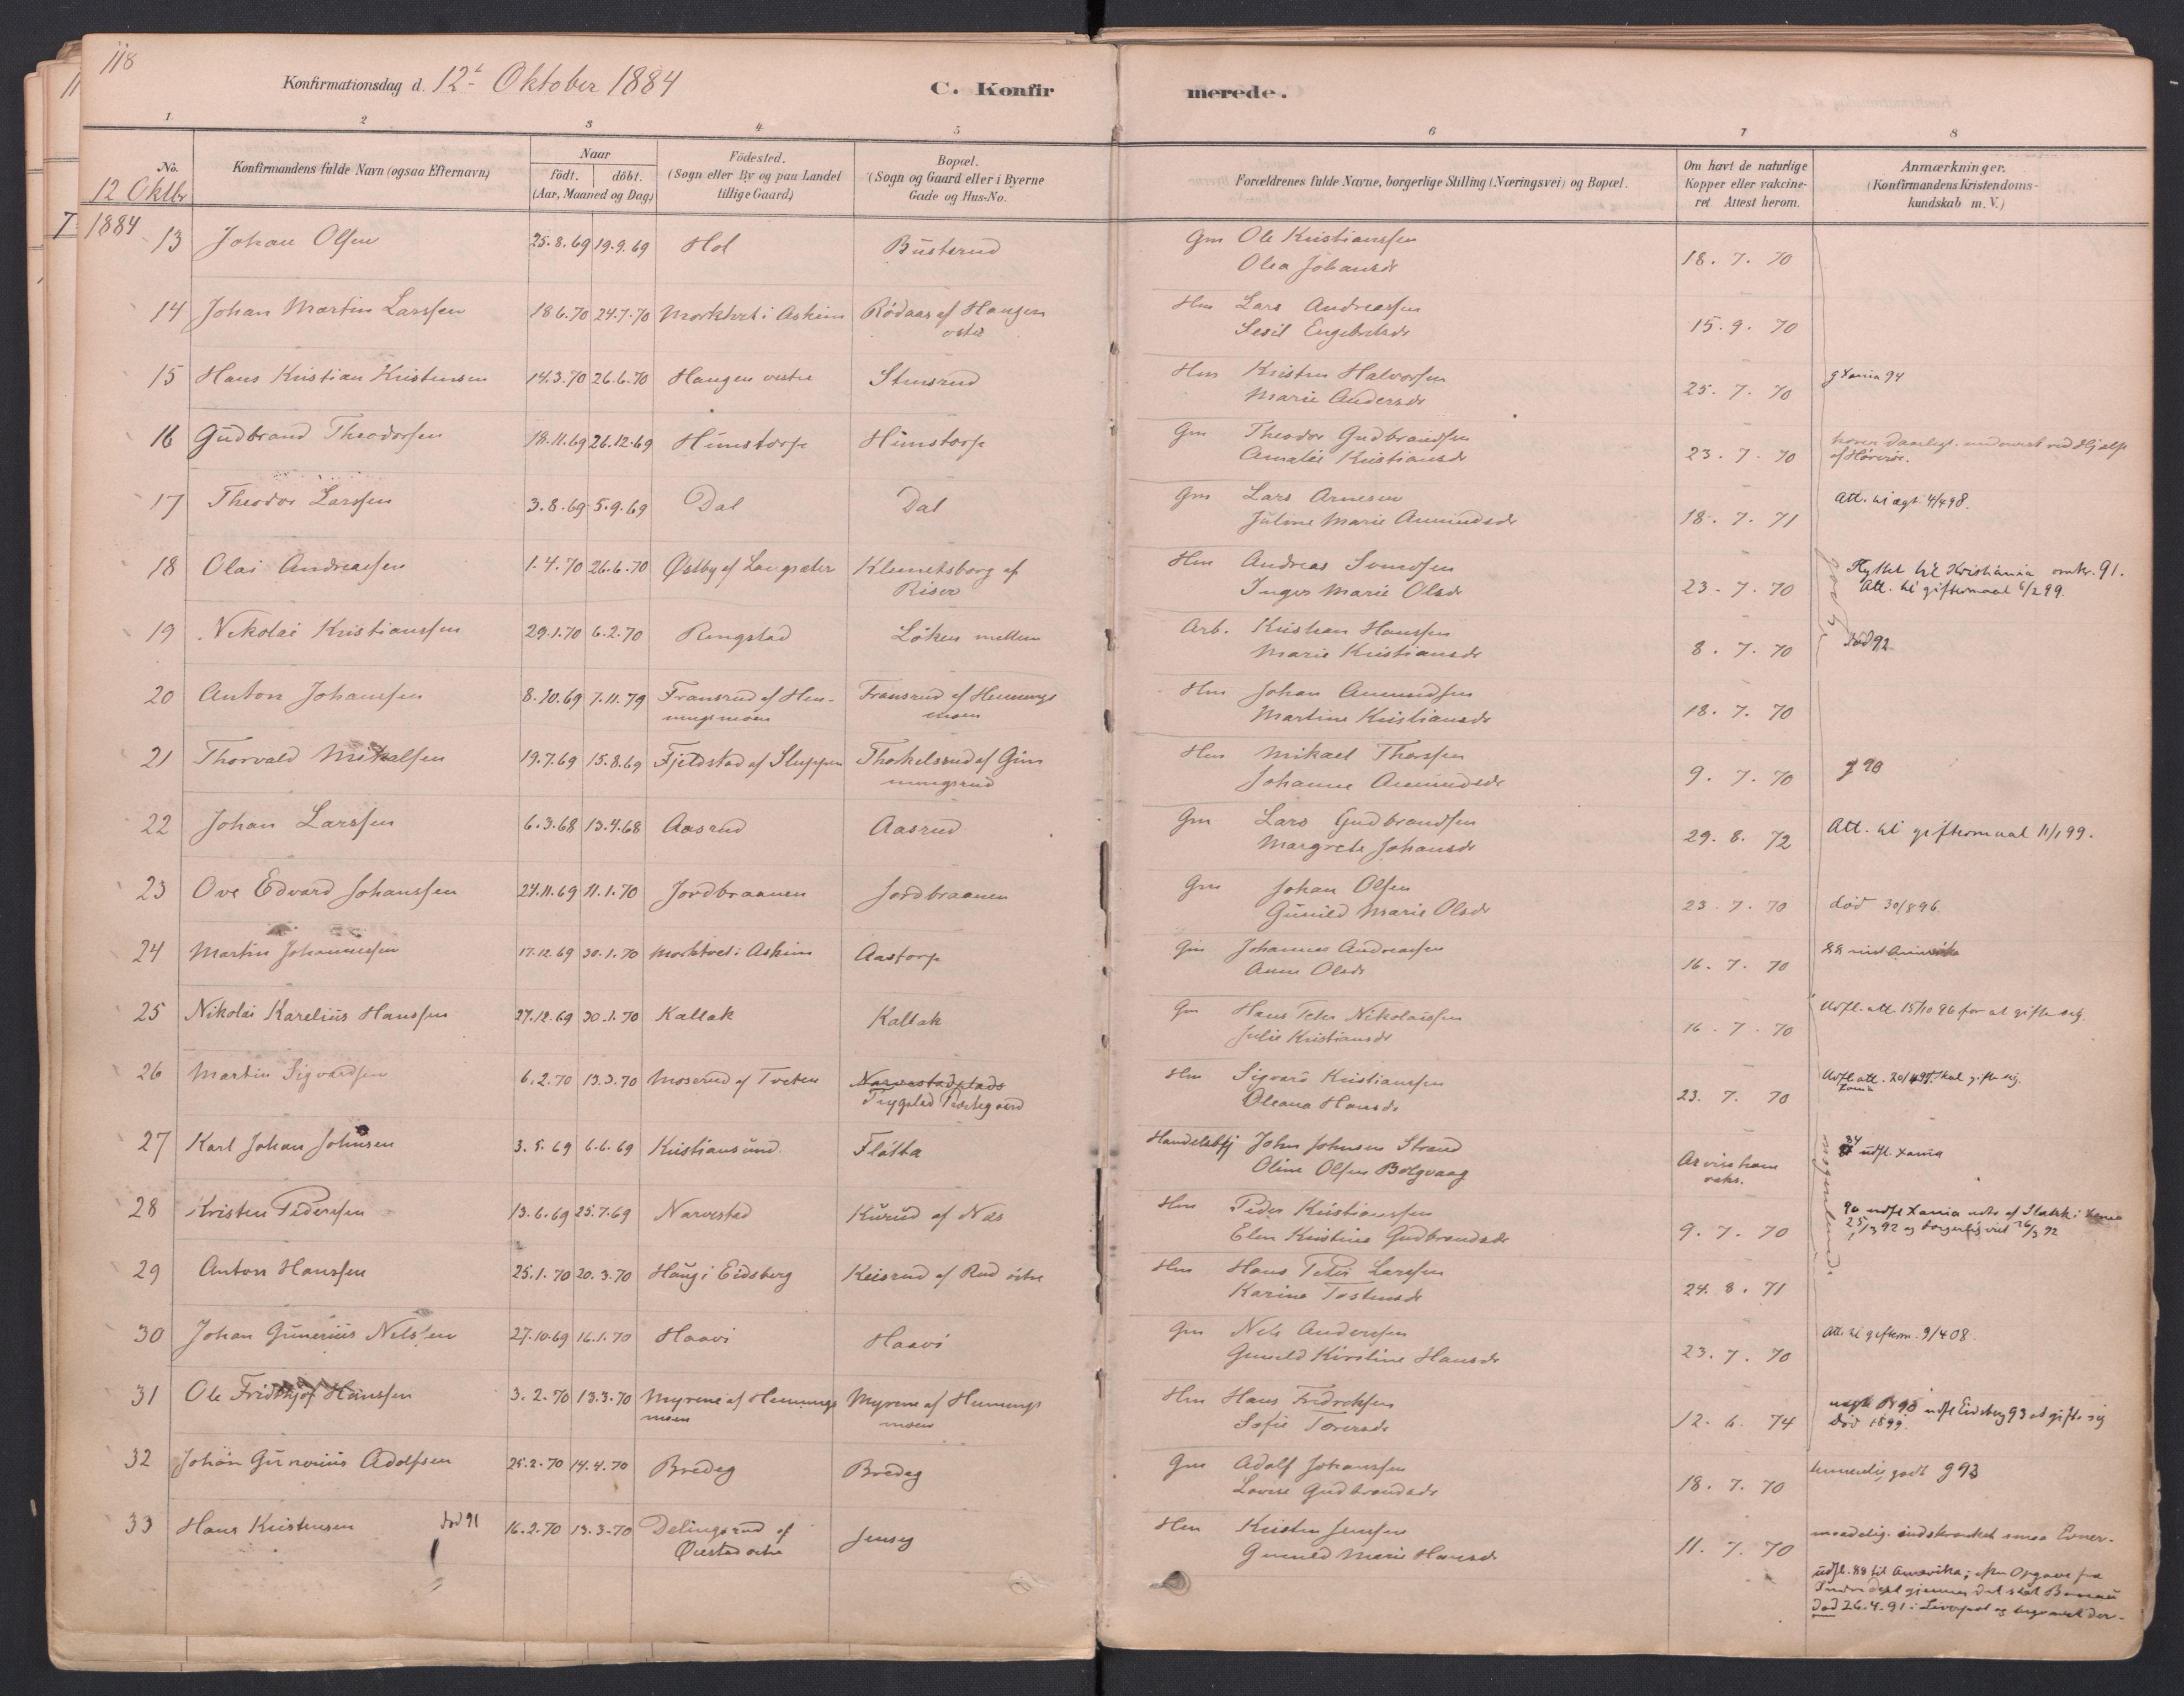 118
Konfirmationsdag d. 12t Oktober 1884
C. Konfirmerede.
1 2 3 4 5 6 7 8
No.
Konfirmandens fulde Navn (ogsaa Efternavn)
Naar
födt. döbt.
(Aar, Maaned og Dag)
Födested.
(Sogn eller By og paa Landet
tillige Gaard)
Bopæl.
(Sogn og Gaard eller i Byerne
Gade og Hus-No.
Forældrenes fulde Navne, borgerlige Stilling (Næringsvei) og Bopæl.
Om havt de naturlige
Kopper eller vakcine-
ret Attest herom.
Anmærkninger.
(Konfirmandens Kristendoms-
kundskab m. V.)
12 Oktbr
1884
13 Johan Olsen 25.8.69 19.9.69 Hol Busterud Gm Ole Kristianssen 18. 7. 70
Olea Johansdr
14 Johan Martin Larssen 18.6.70 24.7.70 Morktvet i Askim Rödaas af Haugen Hm Lars Andreassen 15. 9. 70
Sesil Engebretsdr
15 Hans Kristian Kristensen 14.3.70 26.6.70 Haugen vestre Stensrud Hm Kristen Halvorsen 25. 7. 70 g Xania 94
Marie Andersdr
16 Gudbrand Theodorsen 18.11.69 26.12.69 Humstorp Humstorp Gm Theodor Gudbrandsen 23. 7. 70
Amalie Kristiansdr
af Hörerör.
17 Theodor Larssen 3.8.69 5.9.69 Dal Dal Gm Lars Arnesen 18. 7. 71 Att. til ægt. 4/4 98.
Juline Marie Amundsdr
18 Olai Andreassen 1.4.70 26.6.70 Østby af Langsæter Klemetsborg af Hm Andreas Svendsen 23. 7. 70 Flyttet til Kristiania omtr. 91.
Riser Inger Marie Olsdr Att. til giftermaal 6/2 99.
19 Nikolai Kristianssen 29.1.70 6.2.70 Ringstad Löken mellem Arb. Kristian Hanssen 8. 7. 70 död 92
Marie Kristiansdr
20 Anton Johanssen 8.10.69 7.11.79 Fransrud af Hen- Fransrud af Hennings Hm Johan Amundsen 18. 7. 70
ningsmoen moen Martine Kristiansdr
21 Thorvald Mikalsen 19.7.69 15.8.69 Fjeldstad af Sluppen Thokelsrud af Gim Hm Mikael Thorssen 9. 7. 70 g 90
mingsrud Johanne Amundsdr
22 Johan Larssen 6.3.68 13.4.68 Aasrud Aasrud Gm Lars Gudbrandsen 29. 8. 72 Att. til giftermaal 11/1 99.
Margrete Johansdr
23 Ove Edvard Johanssen 24.11.69 11.1.70 Jordbraanen Jordbraanen Gm Johan Olsen 23. 7. 70 död 30/8 96.
Gunild Marie Olsdr
24 Martin Johannessen 17.12.69 30.1.70 Morktvet i Askim Aastorp Gm Johannes Andreassen 16. 7. 70
Anne Olsdr
25 Nikolai Karelius Hanssen 27.12.69 30.1.70 Kallak Kallak Gm Hans Peter Nikolaissen 16. 7. 70 Udfl. att. 15/10 96 for at gifte sig.
Julie Kristiansdr
26 Martin Sigvardsen 6.2.70 13.3.70 Moserud af Tveten Narvestadplads Hm Sigvard Kristianssen 23. 7. 70
Trygstad Prestegaard Oleana Hansdr
27 Karl Johan Johnsen 3.5.69 6.6.69 Kristiansund Flötta Handelsbtj John Johnsen Strand Ar vise ham 84 udfl. Xania
Oline Olsen Bolgvaag vaks.
28 Kristen Pederssen 13.6.69 25.7.69 Narvestad Kurud af Næs Hm Peder Kristianssen 9. 7. 70 90 udfl Xania
Elen Kristine Gudbrandsdr 25/3 92 og borgerlig viet 26/3 92
29 Anton Hanssen 25.1.70 20.3.70 Haug i Eidsberg Keisrud af Rud östre Hm Hans Peter Larssen 24. 8. 71
Karine Tostensdr
nogenlund.
30 Johan Gunerius Nelssen 27.10.69 16.1.70 Haavi Haavi Gm Nels Anderssen 23. 7. 70 Att. til gifterm. 9/4 08.
Gunild Kirstine Hansdr
31 Ole Fridthjof Hanssen 3.2.70 13.3.70 Myrene af Hennings Myrene af Hennings Hm Hans Fredrikssen 12. 6. 74 udfl Eidsberg 93 at gifte sig
moen moen Sofie Torersdr Död 1899.
32 Johan Gunerius Adolfsen 25.2.70 14.4.70 Bredeg Bredeg Gm Adolf Johanssen 18. 7. 70 temmelig godt g 93
Lovise Gudbrandsdr
33 Hans Kristensen död 91 16.2.70 13.3.70 Delingsrud af Jenseg Hm Kristen Jenssen 11. 7. 70 maadelig. indskrænket smaa Evner.
Örestad östre Gunild Marie Hansdr
udfl. 88 til Amerika;
Död 26.4.91 i Liverpool og begravet der.